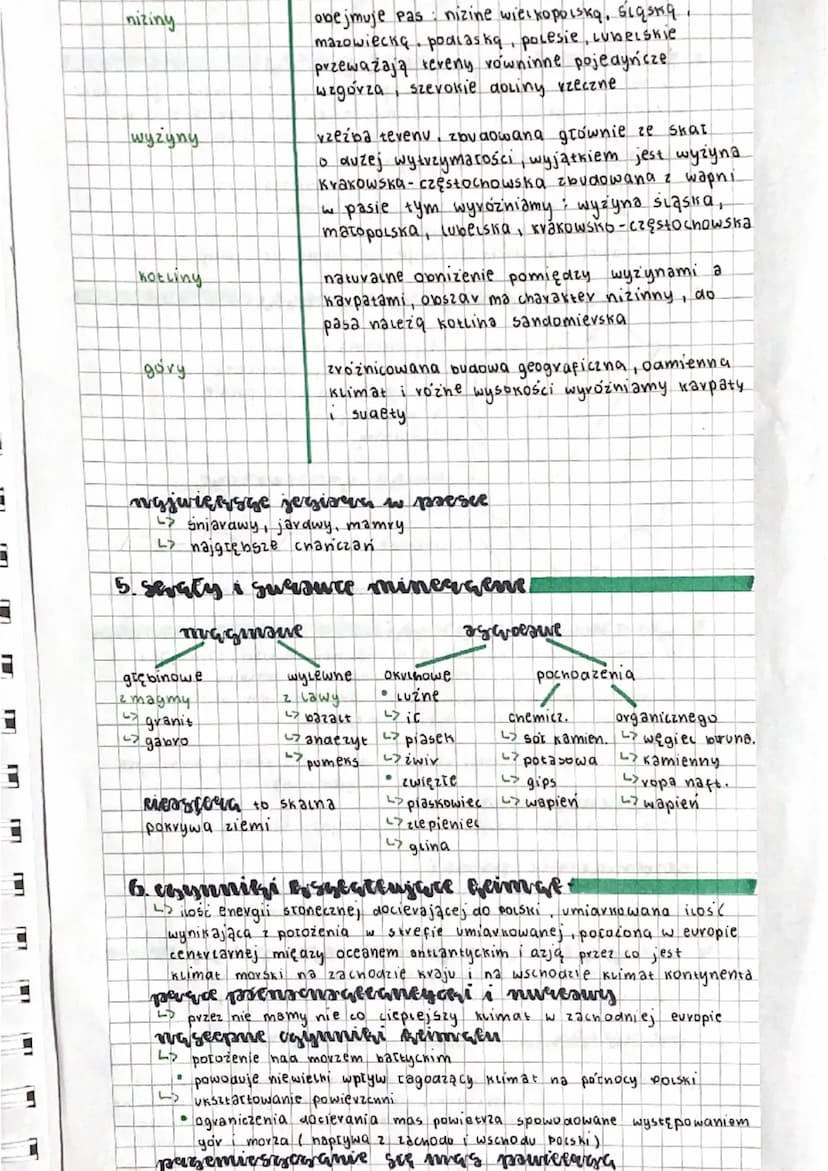 niziny
obejmuje pas : nizine wielkopolską, śląską,
mazowiecką, podlaską, polesie, lubelskie
przeważają tereny równinne pojedyńcze
wzgórza, szerokie doliny rzeczne
wyżyny
rzeźba terenu, zbudowana głównie ze skał
o dużej wytrzymałości, wyjątkiem jest wyżyna
krakowska-częstochowska zbudowana z wapni
w pasie tym wyróżniamy : wyżyna śląska,
małopolska, lubelska, krakowsko-częstochowska
kotliny
naturalne obniżenie pomiędzy wyżynami a
karpatami, obszar ma charakter nizinny, do
pasa należą kotlina sandomierska
góry
zróżnicowana budowa geograficzna, odmienna
klimat i różne wysokości wyróżniamy karpaty
i sudety
największe jeziora w polsce
↳ śniardwy, mamry
↳ najgłębsze chańcza
5. skały i surowce mineralne
magmowe
osadowe
głębinowe
wylewne
okruchowe
pochodzenia
z magmy
z lawy
• luźne
↳ granit
↳ bazalt
↳ ił
chemicz.
organicznego
↳ gabro
↳ andezyt
↳ piasek
↳ sól kamien.
↳ węgiel brunc.
↳ pumeks
↳ żwir
↳ potasowa
↳ kamienny
• zwięzłe
↳ gips
↳ ropa naft.
litosfera to skalna
↳ piaskowiec
↳ wapień
↳ wapień
pokrywa ziemi
↳ zlepieniec
↳ glina
6. czynniki kształtujące klimat
↳ ilość energii słonecznej docierającej do polski, umiarkowana ilość
wynikająca z położenia w strefie umiarkowanej, położona w europie
centrlarnej między oceanem antlantyckim i azją przez co jest
klimat morski na zachodzie kraju i na wschodzie klimat kontynenta
prądce północnoatlantycki i
↳ przez nie mamy nie co cieplejszy klimat w zachodniej europie
następne czynniki klimatu
↳ położenie nad morzem bałtyckim
• powoduje niewielki wpływ łagodzący klimat na północy polski
↳ ukształtowanie powierzchni
• ograniczenia docierania mas powietrza spowodowane występowaniem
gór i morza ( napływa z zachodu i wschodu polski)
przemieszczanie się mas powietrza